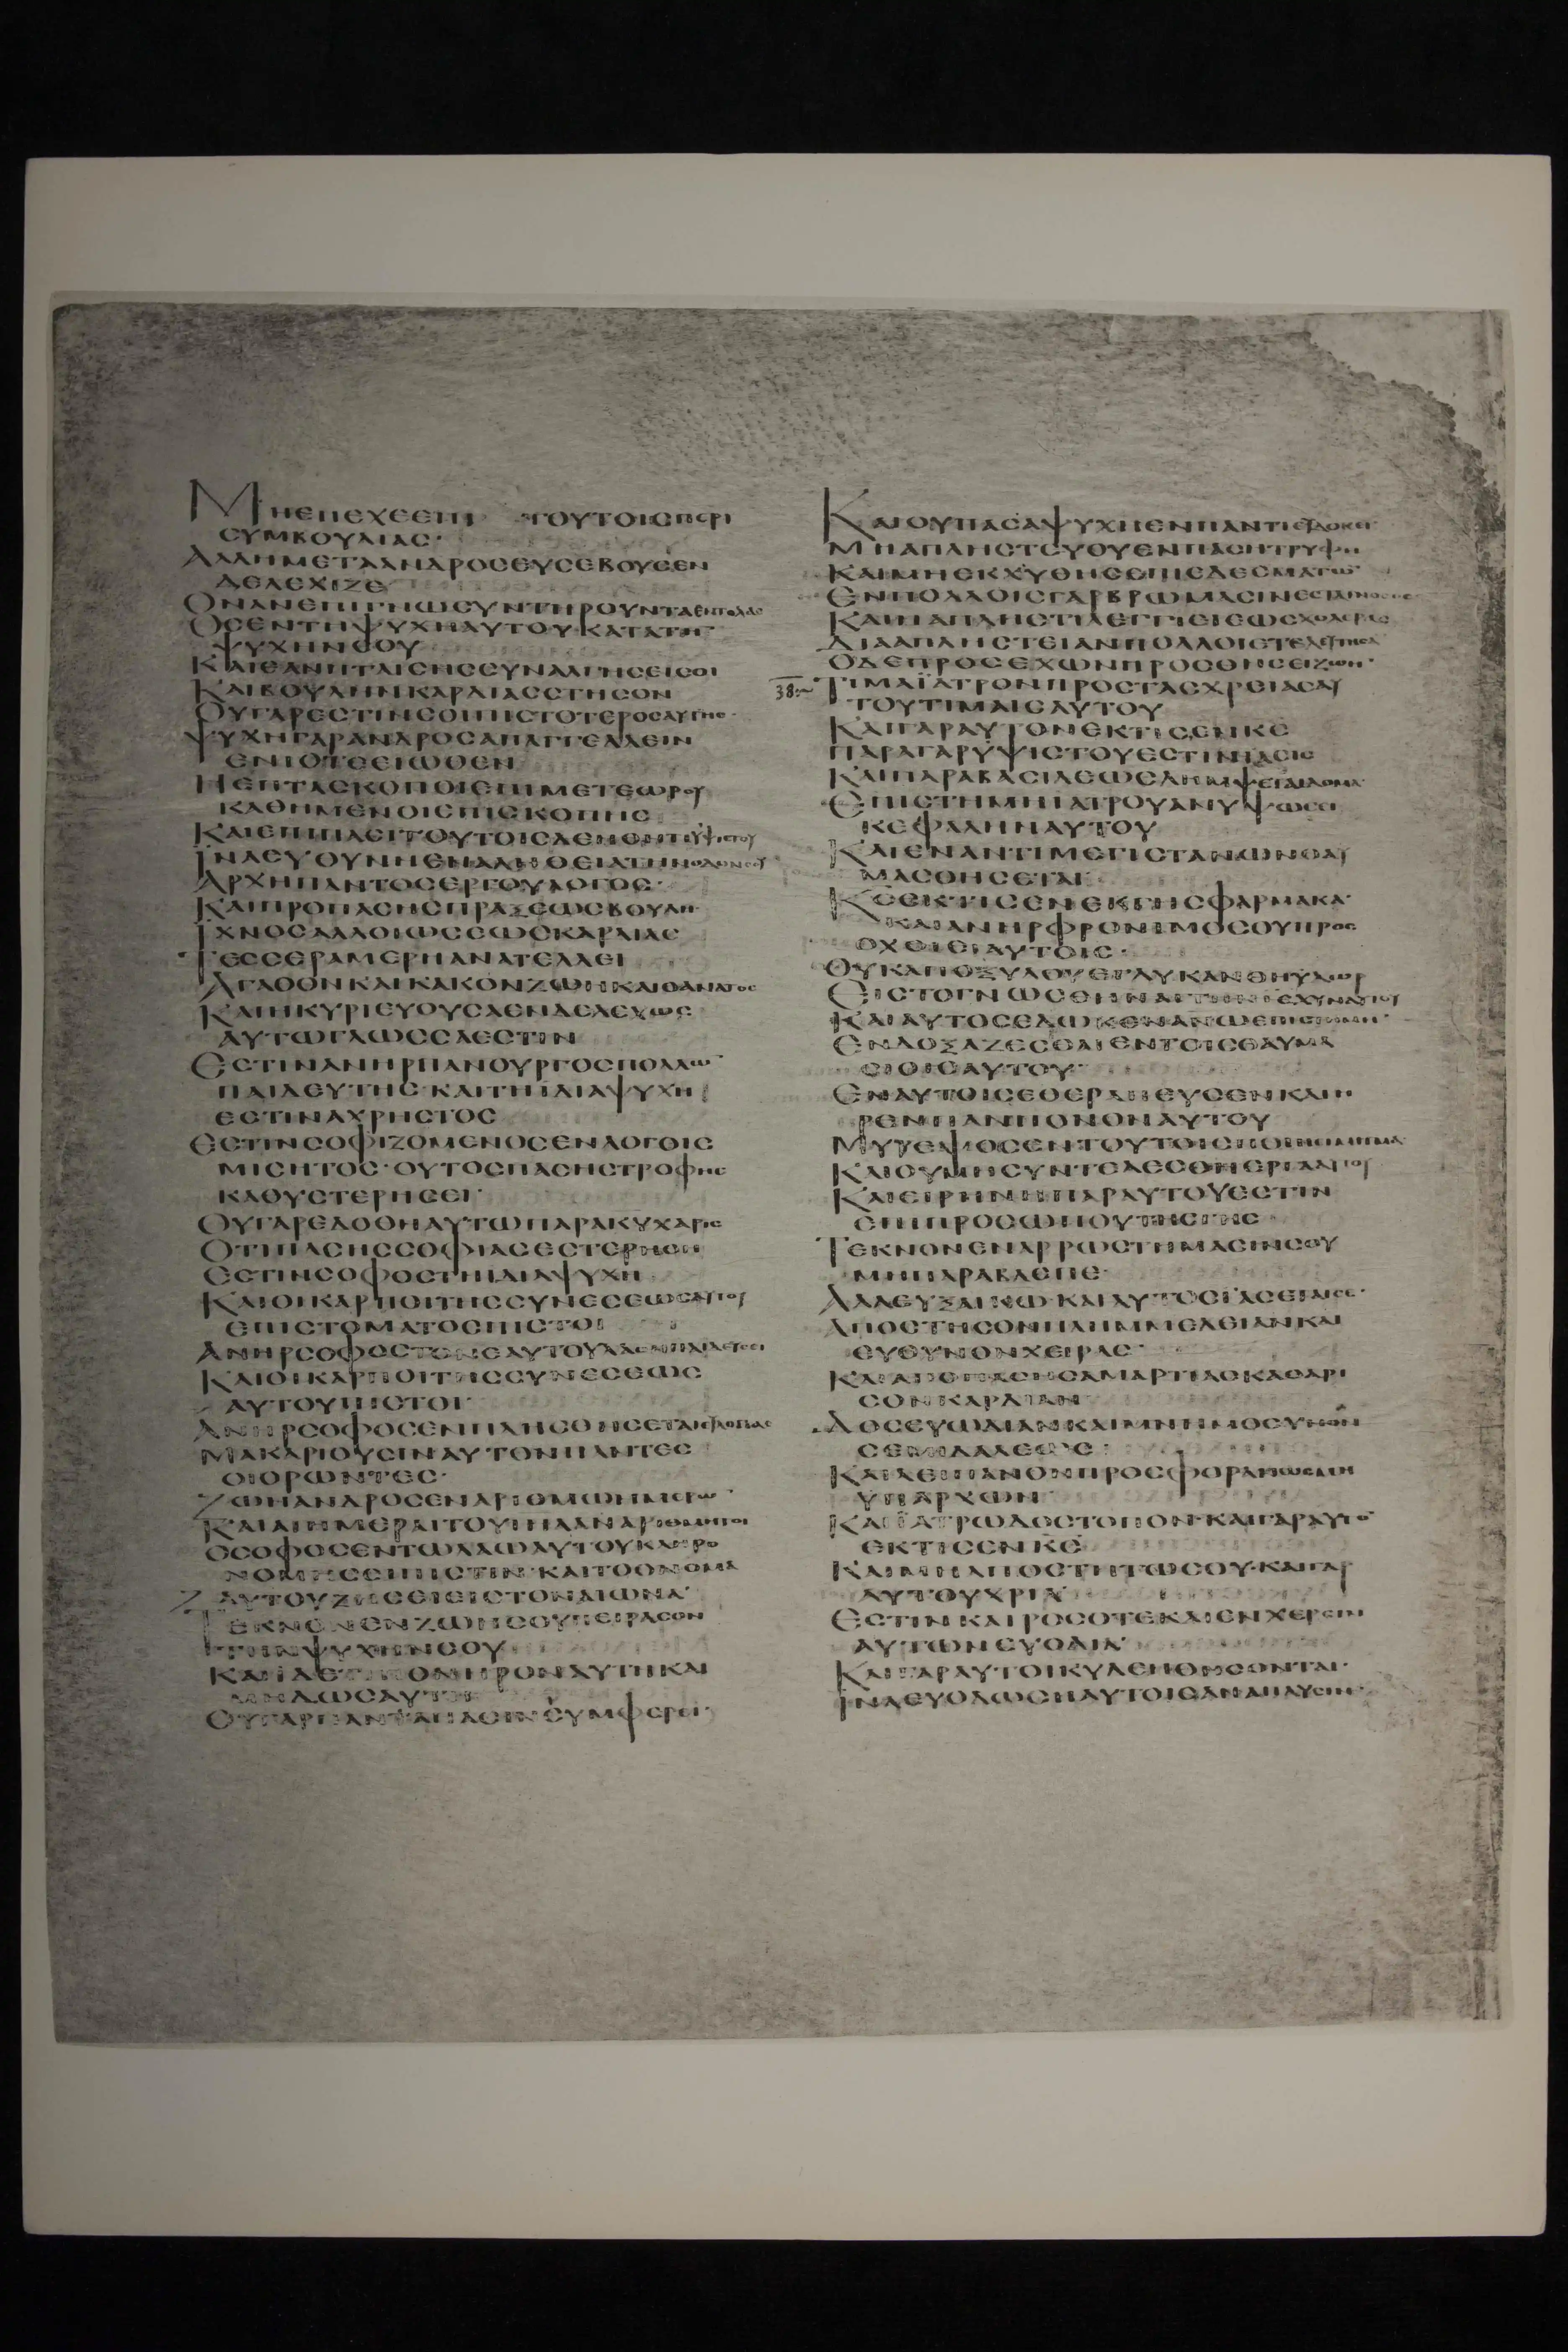 ΜΗΕΠΕΧΕΕΠΙ ΤΟΥΤΟΙΣΠΕΡΙ
ΣΥΜΒΟΥΛΙΑΣ·
ΑΛΛΗΜΕΤΑΑΝΔΡΟΣΕΥΣΕΒΟΥΣΕΝ
ΔΕΛΕΧΙΖΕ
ΟΝΑΝΕΠΙΓΝΩΣΥΝΤΗΡΟΥΝΤΑΕΝΤΟΛΑΣ
ΟΣΕΝΤΗΨΥΧΗΑΥΤΟΥ·ΚΑΤΑΤΗ̅
ΨΥΧΗΝΣΟΥ
ΚΑΙΕΑΝΠΤΑΙΣΗΣΣΥΝΑΛΓΗΣΕΙΣΟΙ
ΚΑΙΒΟΥΛΗΝΚΑΡΔΙΑΣΣΤΗΣΟΝ
ΟΥΓΑΡΕΣΤΙΝΣΟΙΠΙΣΤΟΤΕΡΟΣΑΥΤΗΣ·
ΨΥΧΗΓΑΡΑΝΔΡΟΣΑΠΑΓΓΕΛΛΕΙΝ
ΕΝΙΟΤΕΕΙΩΘΕΝ
ΗΕΠΤΑΣΚΟΠΟΙΕΠΙΜΕΤΕΩΡΟΥ
ΚΑΘΗΜΕΝΟΙΕΠΙΣΚΟΠΗΣ
ΚΑΙΕΠΙΠΑΣΙΤΟΥΤΟΙΣΔΕΗΘΗΤΙΫΨΙΣΤΟΥ
ΪΝΑΕΥΟΥΝΗΕΝΑΛΗΘΕΙΑΤΗΝΟΔΟΝΣΟΥ
ΑΡΧΗΠΑΝΤΟΣΕΡΓΟΥΛΟΓΟΣ·
ΚΑΙΠΡΟΠΑΣΗΣΠΡΑΞΕΩΣΒΟΥΛΗ·
ΙΧΝΟΣΑΛΛΟΙΩΣΕΩΣΚΑΡΔΙΑΣ
ΤΕΣΣΕΡΑΜΕΡΗΑΝΑΤΕΛΛΕΙ
ΑΓΑΘΟΝΚΑΙΚΑΚΟΝΖΩΗΚΑΙΘΑΝΑΤΟΣ
ΚΑΙΗΚΥΡΙΕΥΟΥΣΑΕΝΔΕΛΕΧΩΣ
ΑΥΤΩΓΛΩΣΣΑΕΣΤΙΝ
ΕΣΤΙΝΑΝΗΡΠΑΝΟΥΡΓΟΣΠΟΛΛΩ̅
ΠΑΙΔΕΥΤΗΣ·ΚΑΙΤΗΪΔΙΑΨΥΧΗ
ΕΣΤΙΝΑΧΡΗΣΤΟΣ
ΕΣΤΙΝΣΟΦΙΖΟΜΕΝΟΣΕΝΛΟΓΟΙΣ
ΜΙΣΗΤΟΣ·ΟΥΤΟΣΠΑΣΗΣΤΡΟΦΗΣ
ΚΑΘΥΣΤΕΡΗΣΕΙ·
ΟΥΓΑΡΕΔΟΘΗΑΥΤΩΠΑΡΑΚΥΧΑΡΙΣ
ΟΤΙΠΑΣΗΣΣΟΦΙΑΣΕΣΤΕΡΗΘΗ
ΕΣΤΙΝΣΟΦΟΣΤΗΙΔΙΑΨΥΧΗ
ΚΑΙΟΙΚΑΡΠΟΙΤΗΣΣΥΝΕΣΕΩΣΑΥΤΟΥ
ΕΠΙΣΤΟΜΑΤΟΣΠΙΣΤΟΙ
ΑΝΗΡΣΟΦΟΣΤΟΝΕΑΥΤΟΥΛΑΟΝΠΑΙΔΕΥΣΕΙ
ΚΑΙΟΙΚΑΡΠΟΙΤΗΣΣΥΝΕΣΕΩΣ
ΑΥΤΟΥΠΙΣΤΟΙ·
ΑΝΗΡΣΟΦΟΣΕΝΠΛΗΣΘΗΣΕΤΑΙΕΥΛΟΓΙΑΣ
ΜΑΚΑΡΙΟΥΣΙΝΑΥΤΟΝΠΑΝΤΕΣ
ΟΙΟΡΩΝΤΕΣ·
ΖΩΗΑΝΔΡΟΣΕΝΑΡΙΘΜΩΗΜΕΡΩ̅
ΚΑΙΑΙΗΜΕΡΑΙΤΟΥΙΗΛΑΝΑΡΙΘΜΗΤΟΙ
ΟΣΟΦΟΣΕΝΤΩΛΑΩΑΥΤΟΥΚΛΗΡΟ
ΝΟΜΗΣΕΙΠΙΣΤΙΝ·ΚΑΙΤΟΟΝΟΜΑ
ΑΥΤΟΥΖΗΣΕΙΕΙΣΤΟΝΑΙΩΝΑ
ΤΕΚΝΟΝΕΝΖΩΗΣΟΥΠΕΙΡΑΣΟΝ
ΤΗΝΨΥΧΗΝΣΟΥ
ΚΑΙΪΔΕΤΙΠΟΝΗΡΟΝΑΥΤΗΚΑΙ
ΜΗΔΩΣΑΥΤΗ
ΟΥΓΑΡΠΑΝΤΑΠΑΣΙΝΣΥΜΦΕΡΕΙ·
ΚΑΙΟΥΠΑΣΑΨΥΧΗΕΝΠΑΝΤΙΕΥΔΟΚΕΙ·
ΜΗΑΠΛΗΣΤΕΥΟΥΕΝΠΑΣΗΤΡΥΦΗ
ΚΑΙΜΗΕΚΧΥΘΗΣΕΠΙΕΔΕΣΜΑΤΩ̅
ΕΝΠΟΛΛΟΙΣΓΑΡΒΡΩΜΑΣΙΝΕΣΤΑΙΝΟΣΟΣ
ΚΑΙΗΑΠΛΗΣΤΙΑΕΓΓΙΕΙΕΩΣΧΟΛΕΡΑΣ
ΔΙΑΑΠΛΗΣΤΕΙΑΝΠΟΛΛΟΙΕΤΕΛΕΥΤΗΣΑ̅
ΟΔΕΠΡΟΣΕΧΩΝΠΡΟΣΘΗΣΕΙΖΩΗΝ·
38:~ ΤΙΜΑΪΑΤΡΟΝΠΡΟΣΤΑΣΧΡΕΙΑΣΑΥ
ΤΟΥΤΙΜΑΙΣΑΥΤΟΥ
ΚΑΙΓΑΡΑΥΤΟΝΕΚΤΙΣΕΝΚΣ
ΠΑΡΑΓΑΡΫΨΙΣΤΟΥΕΣΤΙΝΙΑΣΙΣ
ΚΑΙΠΑΡΑΒΑΣΙΛΕΩΣΛΗΜΨΕΤΑΙΔΟΜΑ
ΕΠΙΣΤΗΜΗΙΑΤΡΟΥΑΝΥΨΩΣΕΙ
ΚΕΦΑΛΗΝΑΥΤΟΥ
ΚΑΙΕΝΑΝΤΙΜΕΓΙΣΤΑΝΩΝΘΑΥ
ΜΑΣΘΗΣΕΤΑΙ
ΚΣΕΚΤΙΣΕΝΕΚΓΗΣΦΑΡΜΑΚΑ·
ΚΑΙΑΝΗΡΦΡΟΝΙΜΟΣΟΥΠΡΟΣ
ΟΧΘΙΕΙΑΥΤΟΙΣ·
ΟΥΚΑΠΟΞΥΛΟΥΕΓΛΥΚΑΝΘΗΥΔΩΡ
ΕΙΣΤΟΓΝΩΣΘΗΝΑΙΤΗΝ
ΚΑΙΑΥΤΟΣΕΔΩΚΕΝΑΝΩΕΠΙΣΤΗΜΗΝ·
ΕΝΔΟΞΑΖΕΣΘΑΙΕΝΤΟΙΣΘΑΥΜΑ
ΣΙΟΙΣΑΥΤΟΥ·
ΕΝΑΥΤΟΙΣΕΘΕΡΑΠΕΥΣΕΝΚΑΙΗ
ΡΕΝΠΑΝΠΟΝΟΝΑΥΤΟΥ
ΜΥΡΕΨΟΣΕΝΤΟΥΤΟΙΣΠΟΙΗΣΕΙΜΙΓΜΑ
ΚΑΙΟΥΜΗΣΥΝΤΕΛΕΣΘΗΕΡΓΑΑΥΤΟΥ
ΚΑΙΕΙΡΗΝΗΠΑΡΑΥΤΟΥΕΣΤΙΝ
ΕΠΙΠΡΟΣΩΠΟΥΤΗΣΓΗΣ
ΤΕΚΝΟΝΕΝΑΡΡΩΣΤΗΜΑΣΙΝΣΟΥ
ΜΗΠΑΡΑΒΛΕΠΕ·
ΑΛΛΕΥΞΑΙΚΩ·ΚΑΙΑΥΤΟΣΪΑΣΕΤΑΙΣΕ·
ΑΠΟΣΤΗΣΟΝΠΛΗΜΜΕΛΕΙΑΝΚΑΙ
ΕΥΘΥΝΟΝΧΕΙΡΑΣ·
ΚΑΙΑΠΟΠΑΣΗΣΑΜΑΡΤΙΑΣΚΑΘΑΡΙ
ΣΟΝΚΑΡΔΙΑΝ
ΔΟΣΕΥΩΔΙΑΝΚΑΙΜΝΗΜΟΣΥΝΟΝ
ΣΕΜΙΔΑΛΕΩΣ
ΚΑΙΛΕΙΠΑΝΟΝΠΡΟΣΦΟΡΑΝΩΣΜΗ
ΫΠΑΡΧΩΝ
ΚΑΙΪΑΤΡΩΔΟΣΤΟΠΟΝ·ΚΑΙΓΑΡΑΥΤΟ̅
ΕΚΤΙΣΕΝΚΣ
ΚΑΙΜΗΑΠΟΣΤΗΤΩΣΟΥ·ΚΑΙΓΑΡ
ΑΥΤΟΥΧΡΙΑ
ΕΣΤΙΝΚΑΙΡΟΣΟΤΕΚΑΙΕΝΧΕΡΣΙΝ
ΑΥΤΩΝΕΥΟΔΙΑ
ΚΑΙΓΑΡΑΥΤΟΙΚΥΔΕΗΘΗΣΟΝΤΑΙ·
ΪΝΑΕΥΟΔΩΣΗΑΥΤΟΙΣΑΝΑΠΑΥΣΙΝ·